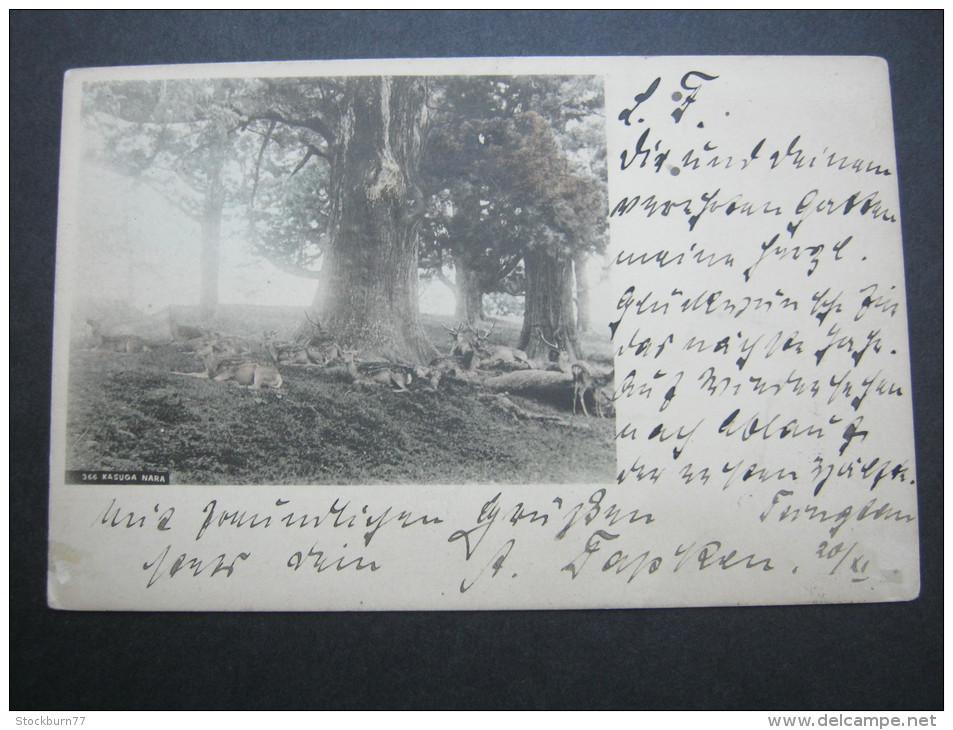 L. F.
Dir und deinem
verehrten Gatten
meine herzl.
Glückwünsche für
das nächste Jahr.
Auf Wiedersehen
nach Ablauf
der ersten Hälfte.
366 KASUGA NARA
Mit freundlichen Grüßen
stets dein A. Tapken. 20/XI
Stockburn77
www.delcampe.net